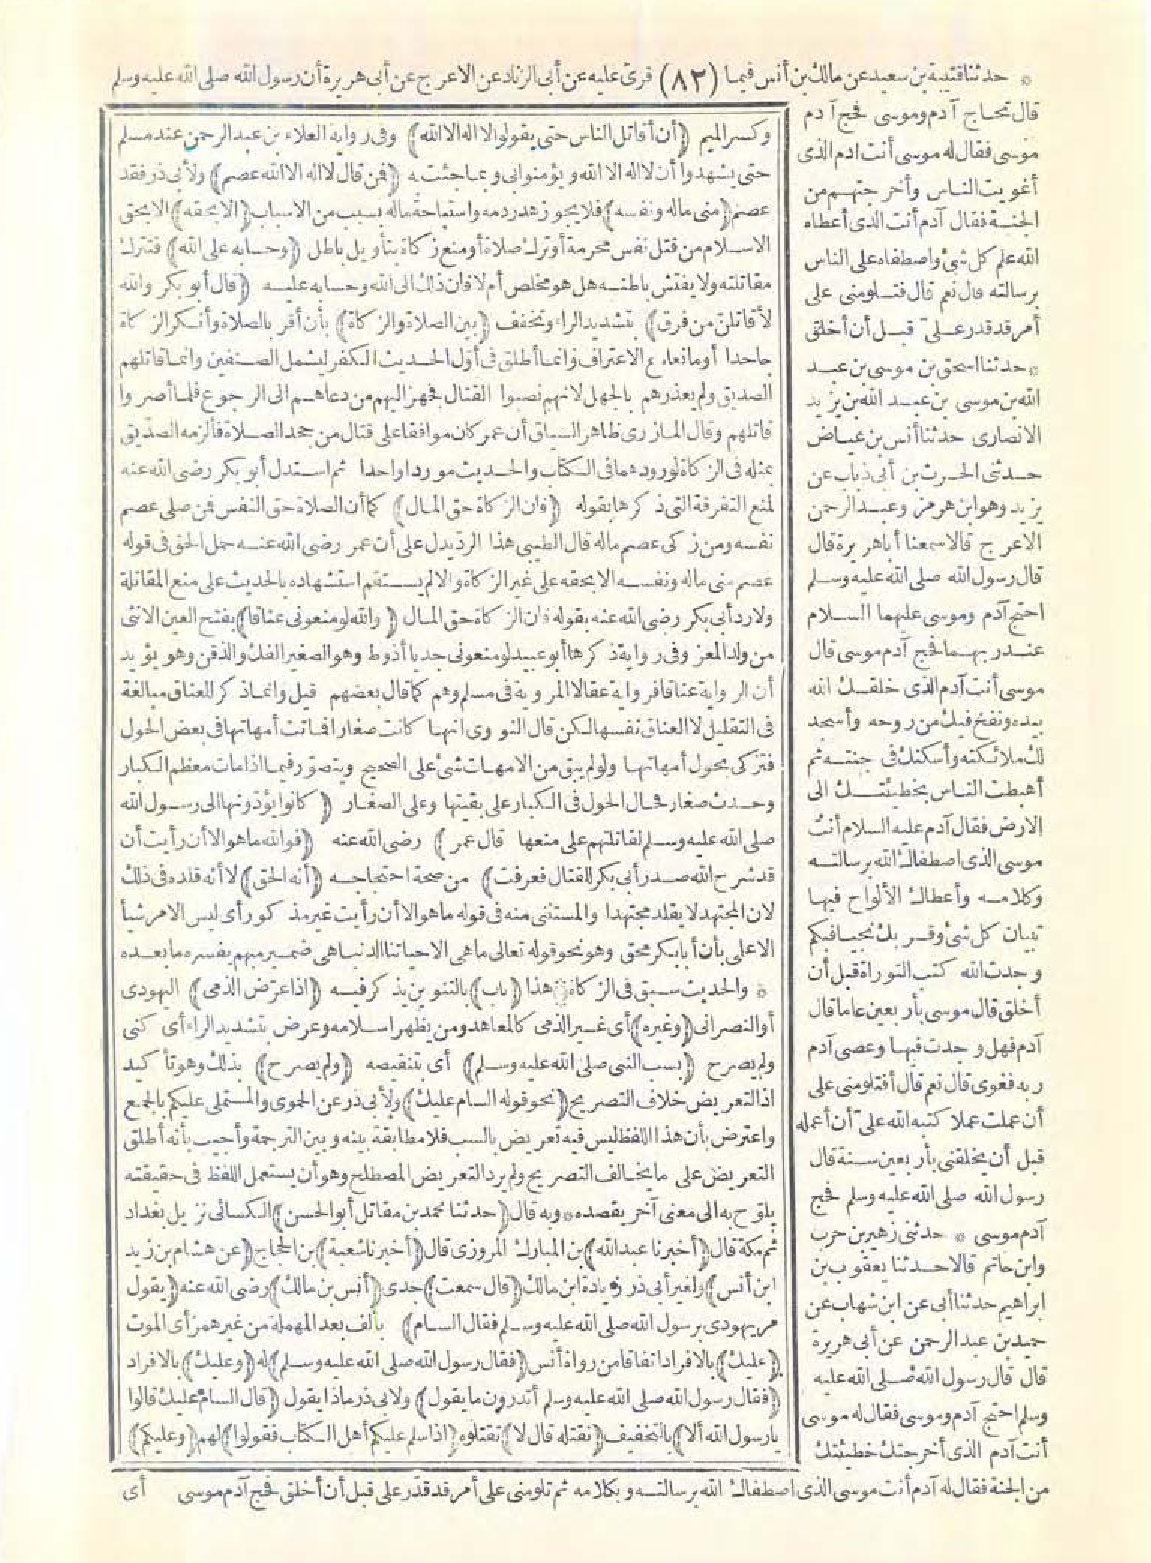 * حدثنا قتيبة بن سعيد عن مالك بن أنس فيما (٨٢) قرئ عليه عن أبي الزناد عن الاعرج عن أبي هريرة أن رسول الله صلى الله عليه وسلم
قال تحاج آدم وموسى فحج آدم
موسى فقال له موسى أنت ادم الذى
أغويت الناس وأخرجتهم من
الجنة فقال آدم أنت الذى أعطاه
الله علم كل شئ واصطفاه على الناس
برسالته قال نعم قال فتلومنى على
أمر قد قدر على قبل أن أخلق
* حدثنا اسحق بن موسى بن عبد
الله بن موسى بن عبد الله بن يزيد
الانصارى حدثنا أنس بن عياض
حدثنى الحرث بن أبى ذباب عن
يزيد وهو ابن هرمز وعبد الرحمن
الاعرج قالا سمعنا أباهريرة قال
قال رسول الله صلى الله عليه وسلم
احتج آدم وموسى عليهما السلام
عند ربهما فحج آدم موسى قال
موسى أنت آدم الذى خلقك الله
بيده ونفخ فيك من روحه وأسجد
لك ملائكته وأسكنك فى جنته ثم
أهبطت الناس بخطيئتك الى
الارض فقال آدم عليه السلام أنت
موسى الذى اصطفاك الله برسالته
وكلامه وأعطاك الألواح فيها
تبيان كل شئ وقربك نجيا فبكم
وجدت الله كتب التوراة قبل أن
أخلق قال موسى بأربعين عاما قال
آدم فهل وجدت فيها وعصى آدم
ربه فغوى قال نعم قال أفتلومنى على
أن عملت عملا كتبه الله على أن أعمله
قبل أن يخلقنى بأربعين سنة قال
رسول الله صلى الله عليه وسلم فحج
آدم موسى * حدثنى زهير بن حرب
وابن حاتم قالا حدثنا يعقوب بن
ابراهيم حدثنا أبى عن ابن شهاب عن
حميد بن عبد الرحمن عن أبى هريرة
قال قال رسول الله صلى الله عليه
وسلم احتج آدم وموسى فقال له موسى
أنت آدم الذى أخرجتك خطيئتك
من الجنة فقال له آدم أنت موسى الذى اصطفاك الله برسالته وبكلامه ثم تلومنى على أمر قد قدر على قبل أن أخلق فحج آدم موسى
وكسر الميم (أن أقاتل الناس حتى يقولوا لا اله الا الله) وفى رواية العلاء بن عبد الرحمن عند مسلم
حتى يشهدوا أن لا اله الا الله ويؤمنوا بى وبما جئت به (فمن قال لا اله الا الله عصم) ولأبى ذر فقد
عصم (منى ماله ونفسه) فلا يجوز هدر دمه واستباحة ماله بسبب من الاسباب (الا بحقه) الا بحق
الاسلام من قتل نفس محرمة أو ترك صلاة أو منع زكاة بتأويل باطل (وحسابه على الله) فنترك
مقاتلته ولا يفتش باطنه هل هو مخلص أم لا فان ذلك الى الله وحسابه عليه (قال أبو بكر والله
لأقاتلن من فرق) بتشديد الراء وتخفف (بين الصلاة والزكاة) بأن أقر بالصلاة وأنكر الزكاة
جاحدا أو مانعا مع الاعتراف وانما أطلق فى أول الحديث الكفر ليشمل الصنفين وانما قاتلهم
الصديق ولم يعذرهم بالجهل لانهم نصبوا القتال فجهز اليهم من دعاهم الى الرجوع فلما أصروا
قاتلهم وقال المازرى ظاهر السياق أن عمر كان موافقا على قتال من جحد الصلاة فألزمه الصديق
بمثله فى الزكاة لورودهما فى الكتاب والحديث موردا واحدا ثم استدل أبو بكر رضى الله عنه
لمنع التفرقة التى ذكرها بقوله (فان الزكاة حق المال) كما أن الصلاة حق النفس فمن صلى عصم
نفسه ومن زكى عصم ماله قال الطيبى هذا الرد يدل على أن عمر رضى الله عنه حمل الحق فى قوله
عصم منى ماله ونفسه الا بحقه على غير الزكاة والا لم يستقم استشهاده بالحديث على منع المقاتلة
ولا رد أبى بكر رضى الله عنه بقوله فان الزكاة حق المال (والله لو منعونى عناقا) بفتح العين الانثى
من ولد المعز وفى رواية ذكرها أبو عبيد لو منعونى جديا أذوط وهو الصغير الفك والذقن وهو يؤيد
أن الرواية عناقا فرواية عقالا المروية فى مسلم وهم كما قال بعضهم قيل وانما ذكر للعناق مبالغة
فى التقليل لا العناق نفسها لكن قال النووى انها كانت صغارا فماتت أمهاتها فى بعض الحول
فتزكى بحول أمهاتها ولو لم يبق من الامهات شئ على الصحيح ويتصور فيما اذا مات معظم الكبار
وحدث صغار فحال الحول فى الكبار على بقيتها وعلى الصغار (كانوا يؤدونها الى رسول الله
صلى الله عليه وسلم لقاتلتهم على منعها قال عمر) رضى الله عنه (فوالله ما هو الا أن رأيت أن
قد شرح الله صدر أبى بكر للقتال فعرفت) من صحة احتجاجه (أنه الحق) لا أنه قلده فى ذلك
لان المجتهد لا يقلد مجتهدا والمستثنى منه فى قوله ما هو الا أن رأيت غير مذكور أى ليس الامر شيأ
الا علمى بأن أبا بكر محق وهو نحو قوله تعالى ما هى الا حياتنا الدنيا هى ضمير مبهم يفسره ما بعده
* والحديث سبق فى الزكاة هذا (باب) بالتنوين يذكر فيه (اذا عرّض الذمى) اليهودى
أو النصرانى (وغيره) أى غير الذمى كالمعاهد ومن يظهر اسلامه وعرض بتشديد الراء أى كنى
ولم يصرح (بسب النبى صلى الله عليه وسلم) أى بتنقيصه (ولم يصرح) بذلك وهو تأكيد
اذ التعريض خلاف التصريح (نحو قوله السام عليك) ولأبى ذر عن الحموى والمستملى عليكم بالجمع
واعترض بأن هذا اللفظ ليس فيه تعريض بالسب فلا مطابقة بينه وبين الترجمة وأجيب بأنه أطلق
التعريض على ما يخالف التصريح ولم يرد التعريض المصطلح وهو أن يستعمل اللفظ فى حقيقته
يلوح به الى معنى آخر يقصده * وبه قال (حدثنا محمد بن مقاتل أبو الحسن) الكسائى نزيل بغداد
ثم مكة قال (أخبرنا عبد الله) بن المبارك المروزى قال (أخبرنا شعبة) بن الحجاج (عن هشام بن زيد
ابن أنس) ولغير أبى ذر زيادة ابن مالك (قال سمعت) جدى (أنس بن مالك) رضى الله عنه (يقول
مر يهودى برسول الله صلى الله عليه وسلم فقال السام) بألف بعد المهملة من غير همز أى الموت
(عليك) بالافراد اتفاقا من رواة أنس (فقال رسول الله صلى الله عليه وسلم) له (وعليك) بالافراد
(فقال رسول الله صلى الله عليه وسلم أتدرون ما يقول) ولابى ذر ماذا يقول (قال السام عليك قالوا
يا رسول الله ألا) بالتخفيف (نقتله قال لا) تقتلوه (اذا سلم عليكم أهل الكتاب فقولوا) لهم (وعليكم)
أى